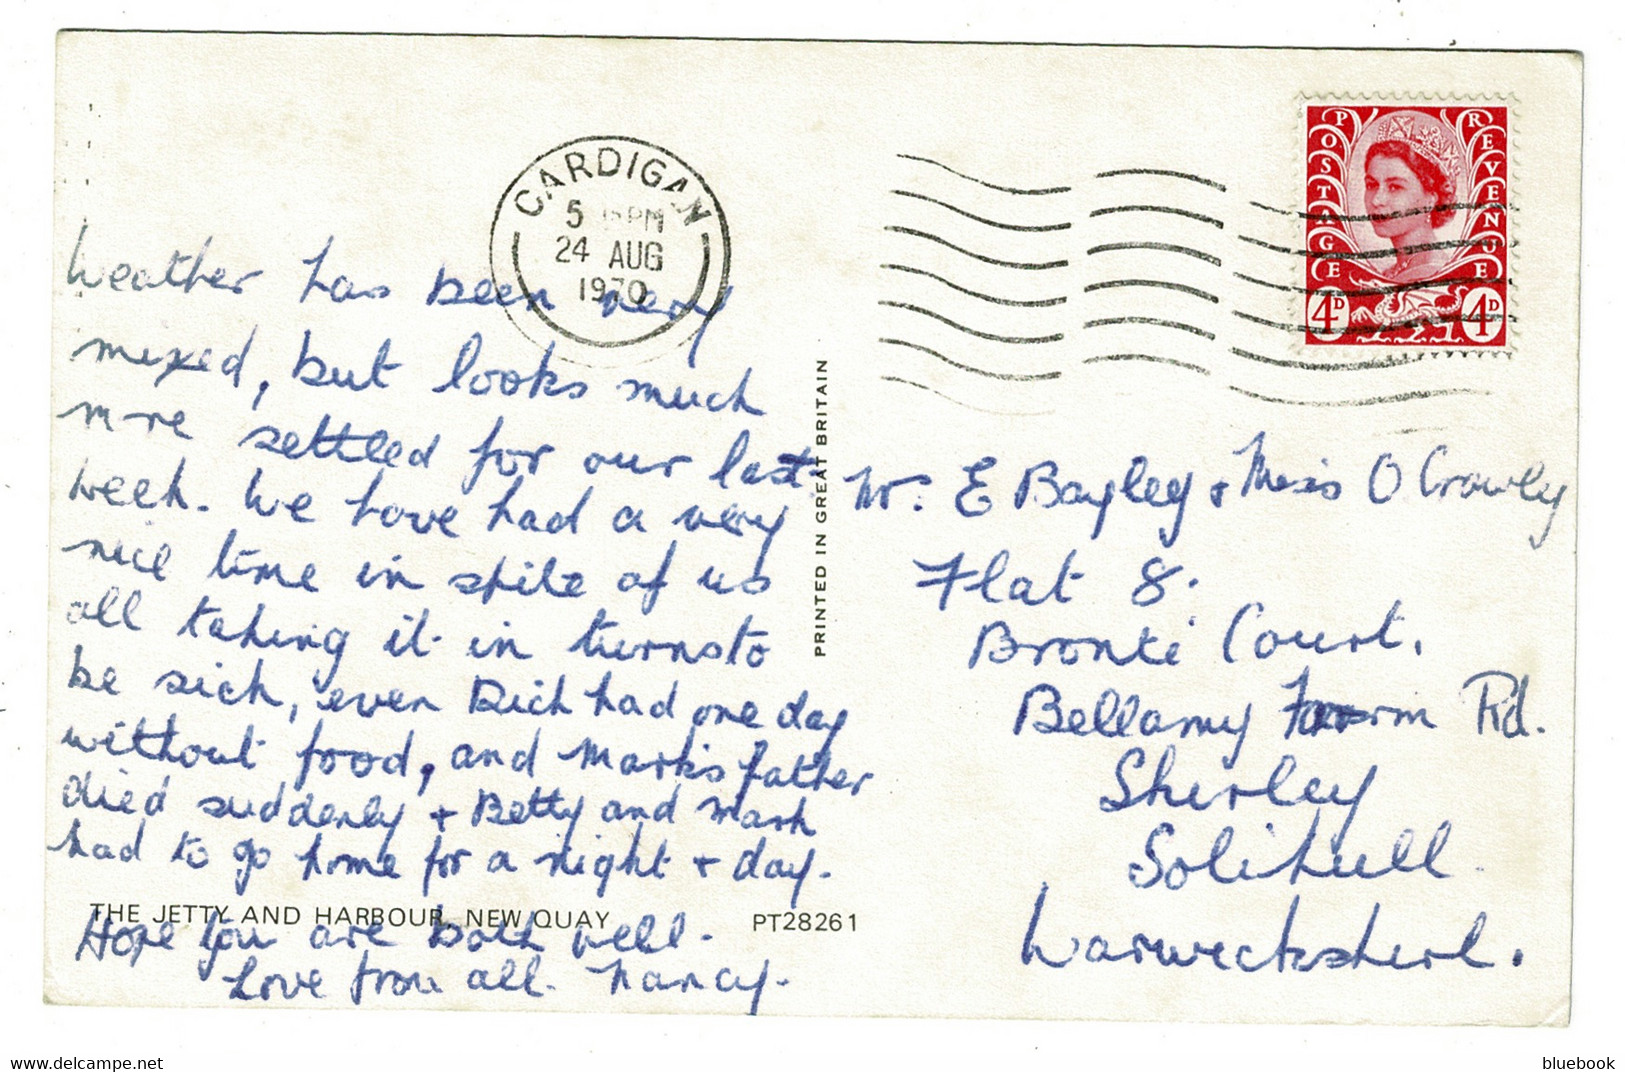 CARDIGAN
5 PM
24 AUG
1970
POSTAGE REVENUE
4D 4D
Weather has been very
mixed, but looks much
more settled for our last
week. We have had a very
nice time in spite of us
all taking it in turns to
be sick, even Rich had one day
without food, and Mark's father
died suddenly + Betty and Mark
had to go home for a night + day.
Hope you are both well.
Love from all. Nancy.
THE JETTY AND HARBOUR, NEW QUAY
PT28261
PRINTED IN GREAT BRITAIN
Mr. E Bayley + Miss O Crowley
Flat 8.
Bronte Court,
Bellamy Farm Rd.
Shirley
Solihull.
Warwickshire.
bluebook